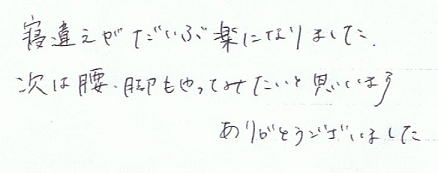 寝違えがだいぶ楽になりました。
次は腰、脚もやってみたいと思います
ありがとうございました